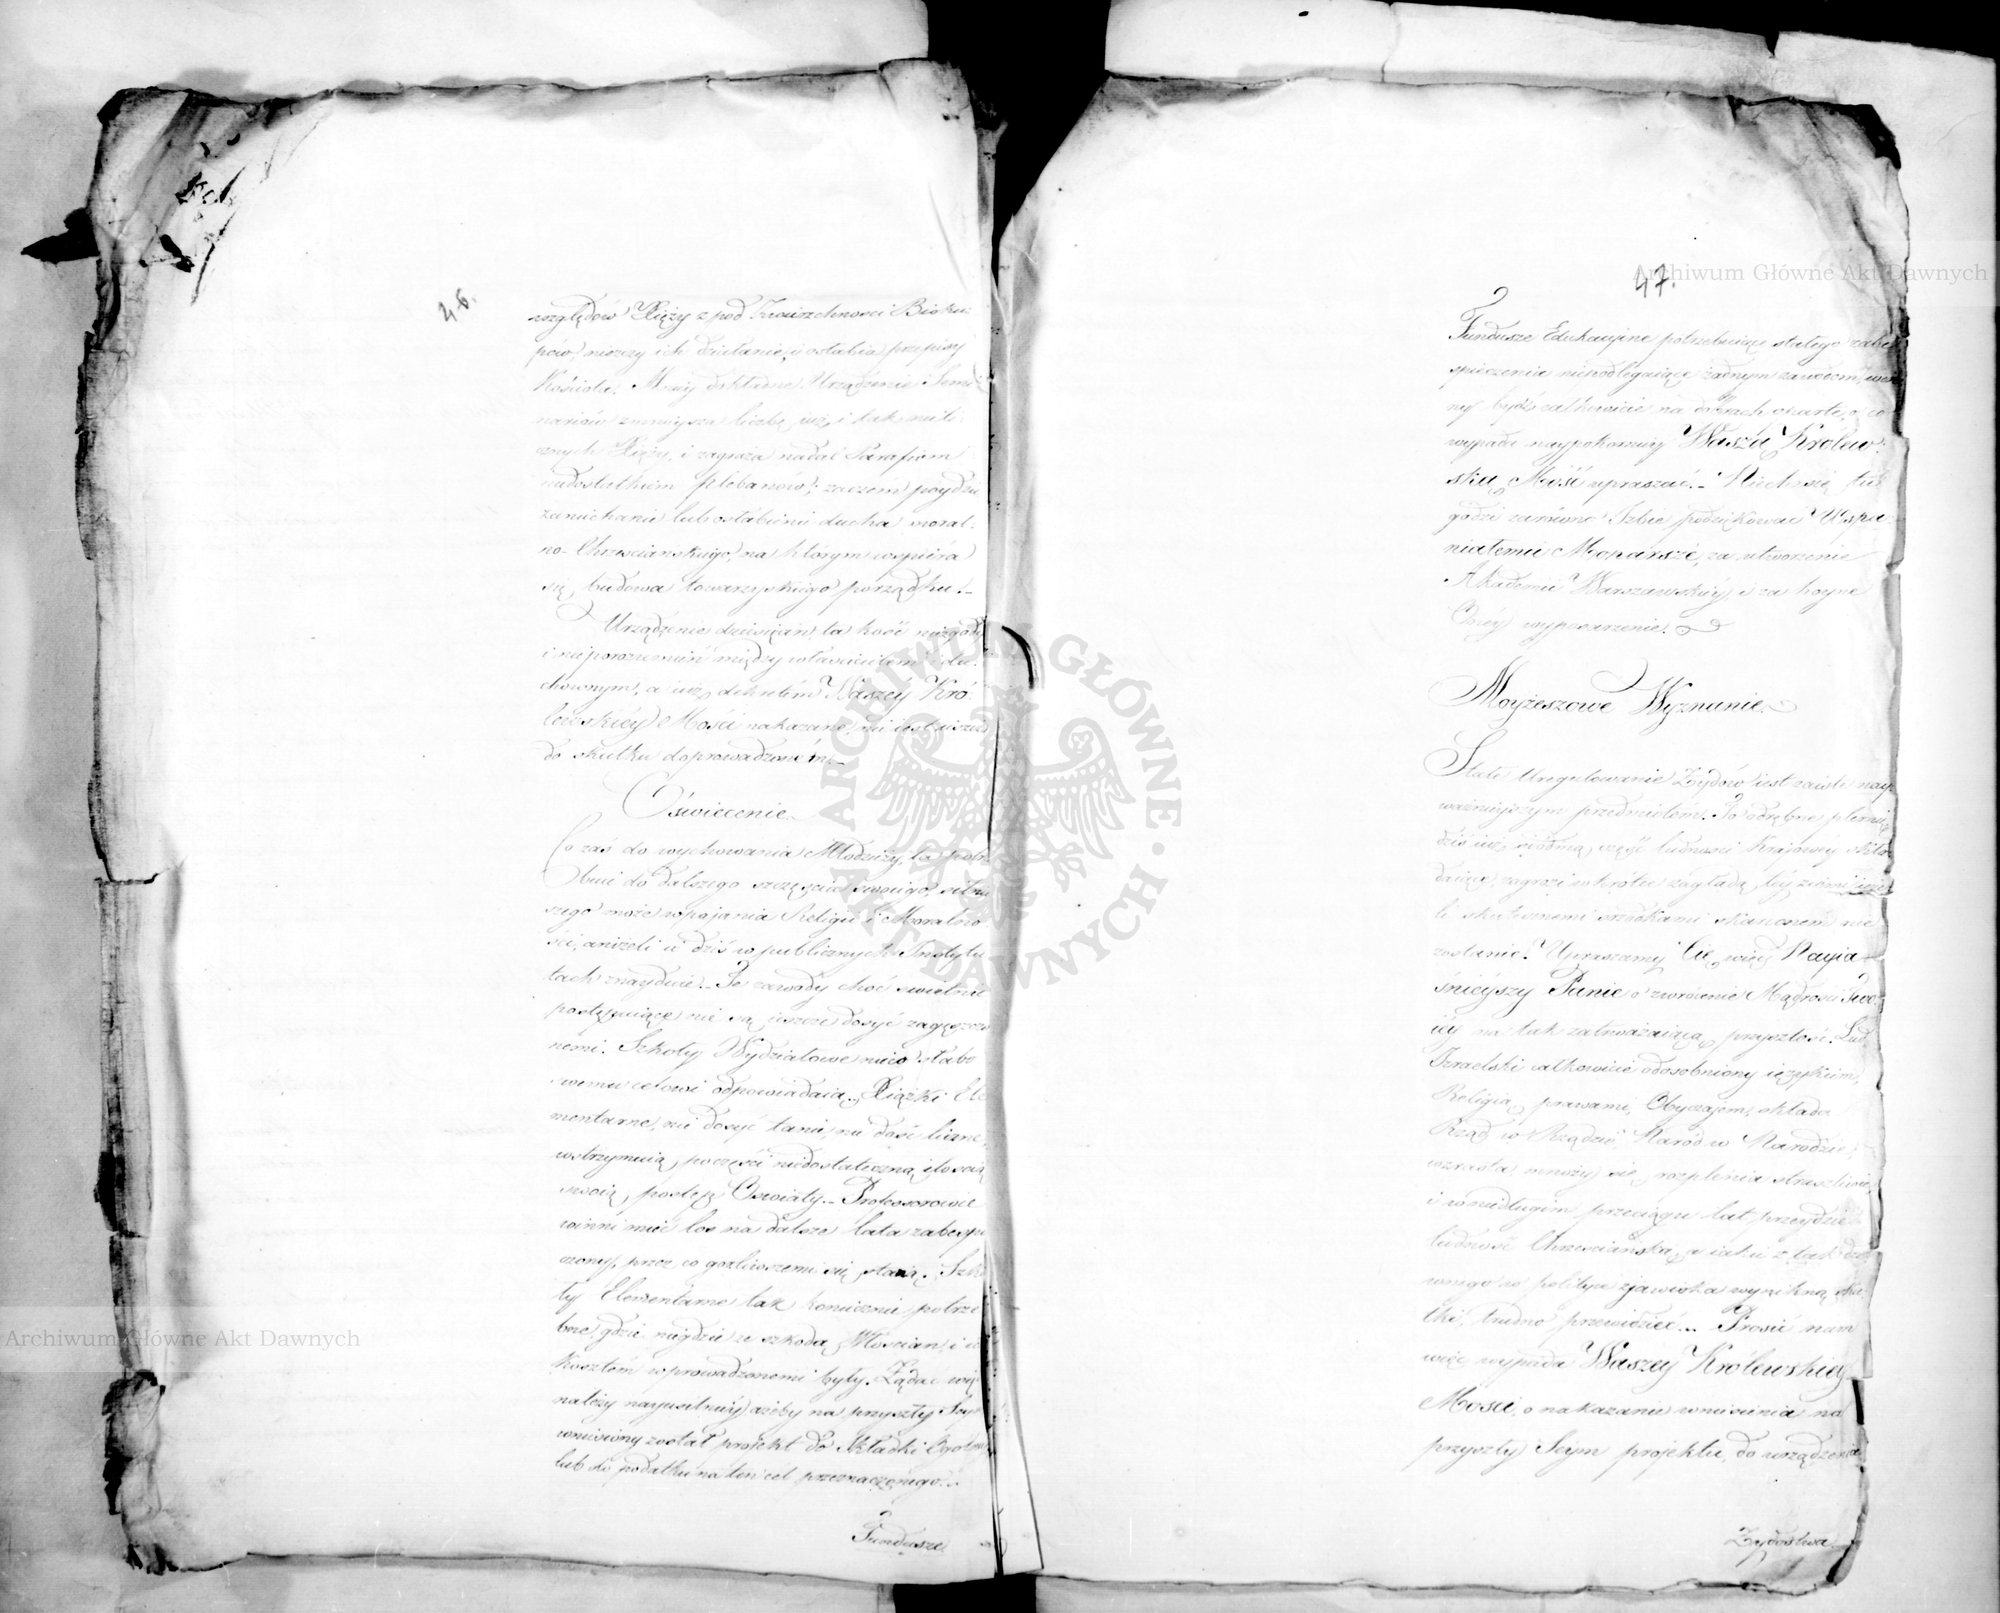 46.
względów Xięży z pod Zwierzchności Bisku:
pów, niszczy ich działanie, i osłabia przepisy
Kościoła. Mniey dokładne Urządzenie Semi:
nariów zmnieysza liczbę już i tak nieli:
cznych Xięży, i zagraża nadal Parafiom
niedostatkiem Plebanów; zaczem poydzie
zaniechanie lub osłabienie ducha moral:
no-Chrześciańskiego, na którym wspiera
się, budowa towarzyskiego porządku._
Urządzenie dziesięcin ta kość niezgody
i nieporozumień między właścicielem i du:
chownym, a już dekretem Waszey Kró
lewskiéy Mości nakazane, nie iest ieszcze
do skutku doprowadzoném._
Oświecenie.
Co zaś do wychowania Młodzieży, ta potrz
ebuie do dalszego szczęścia swoiego, silniey
szego może wpaiania Religii i Moralno
ści, aniżeli ie dziś w publicznych Instytu
tach znayduie._ Te zawody choć świetnie
postępuiące nie są ieszcze dosyć zagęszczo
nemi. Szkoły Wydziałowe nieco słabo
swemu celowi odpowiadaią._ Xiążki Ele
mentarne, nie dosyć tanie, nie dość liczne,
wstrzymuią poczęści niedostateczną ilością
swoią, postęp Oświaty._ Professorowie
winni mieć los na dalsze lata zabespie
czony, przez co gorliwszemi się staną. Szko
ły Elementarne tak koniecznie potrze
bne, gdzie niegdzie ze szkodą Włościan, i ich
kosztem wprowadzonemi były. Żądać więc
należy nayusilniéy ażeby na przyszły Seym
wniesiony został projekt do Składki Ogólney
lub do podatku na ten cel przeznaczonego._
Fundusze
47.
Fundusze Edukacyine potrzebuiące stałego zabe
spieczenia niepodlegaiące żadnym zawodom, win
ny bydź całkowicie na dobrach oparte, o co
wypada naypokorniéy Waszą Królew:
ską Mość upraszać._ Niech się tu
godzi zarówno Izbie podziękować Wspa:
niałemu Monarsze, za utworzenie
Akademii Warszawskiéy, i za hoyne
Oneéy wyposażenie.
Moyżeszowe Wyznanie.
Stałe Uregulowanie Żydów iest zaiste nay
ważnieyszym przedmiotem. To odrębne plemię
dziś iuż siódmą część ludności Kraiowéy skła
daiące, zagrozi wkrótce zagładą téy ziemi ieże
li skutecznemi środkami skarconem nie
zostanie! Upraszamy Cię więc Nayia
śnieyszy Panie o zwrócenie Mądrości Two:
iéy na tak zatrważaiącą przyszłość. Lud
Izraelski całkowicie odosobniony ięzykiem,
Religią, prawami, Obyczaiem, składa
Rząd w Rządzie, Naród w Narodzie;
wzrasta mnoży się, rozplenia straszliwie,
i w niedługim przeciągu lat, przeydzie
ludność Chrześciańską, a iakie z tak dzi
wnego w polityce zjawiska wynikną sku
tki, trudno przewidzieć._ Prosić nam
więc wypada Waszey Królewskiey
Mości, o nakazanie wniesienia na
przyszły Seym projektu, do urządzenia
Żydostwa
Archiwum Główne Akt Dawnych
ARCHIWUM GŁÓWNE AKT DAWNYCH
Archiwum Główne Akt Dawnych